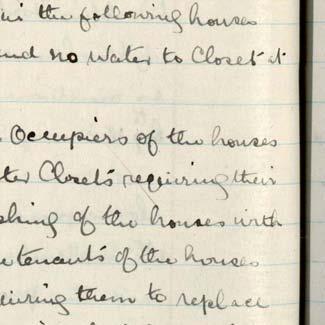 in the following houses
and no Water to Closet at
Occupiers of the houses
ter Closets requiring their
shing of the houses with
e tenants of the houses
uiring them to replace